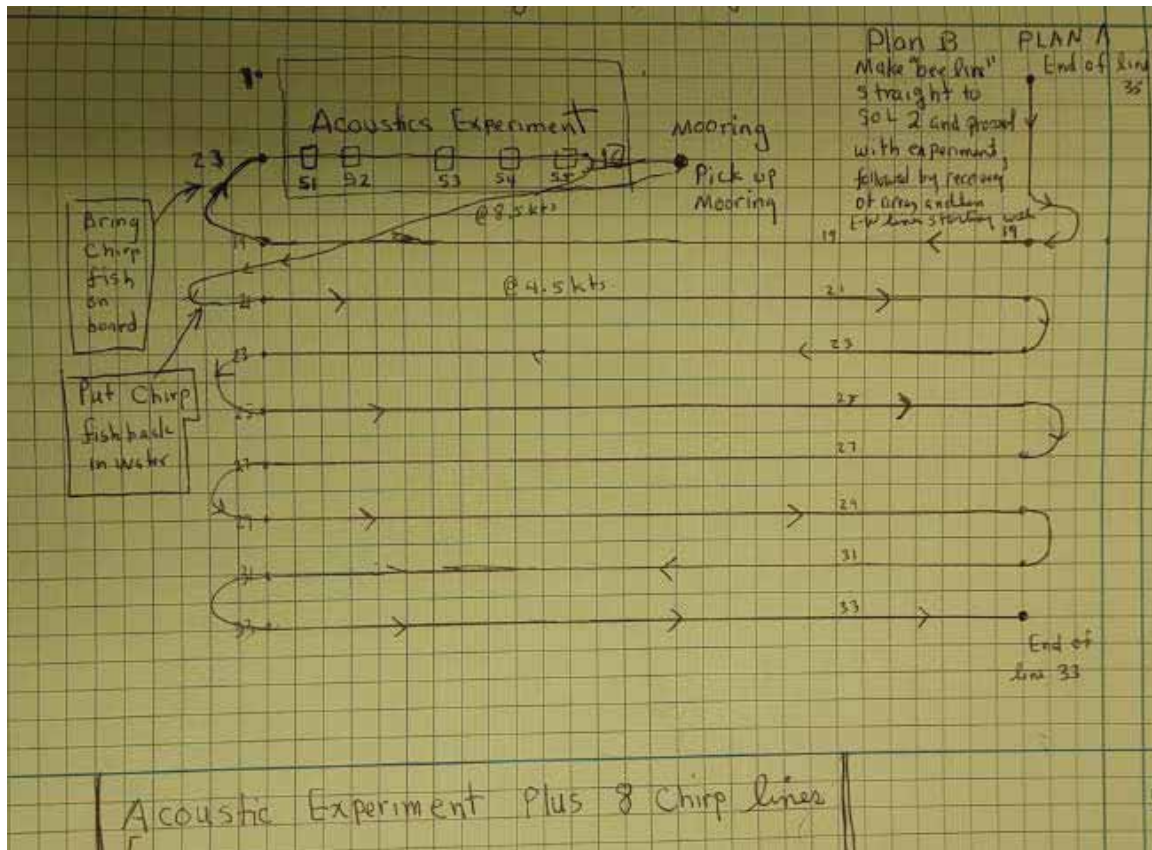 Plan B
Make "bee line"
straight to
SOL 2 and proceed
with experiment,
followed by recovery
of array and then
E-W lines starting with
19
PLAN A
End of line
35
Acoustics Experiment
S1
S2
S3
S4
S5
Mooring
Pick up
Mooring
23
Bring
Chirp
fish
on
board
@ 8.5 kts
19
19
21
@ 4.5 kts
21
23
23
Put Chirp
fish back
in water
25
25
27
27
29
29
31
31
33
33
End of
line 33
Acoustic Experiment Plus 8 Chirp lines